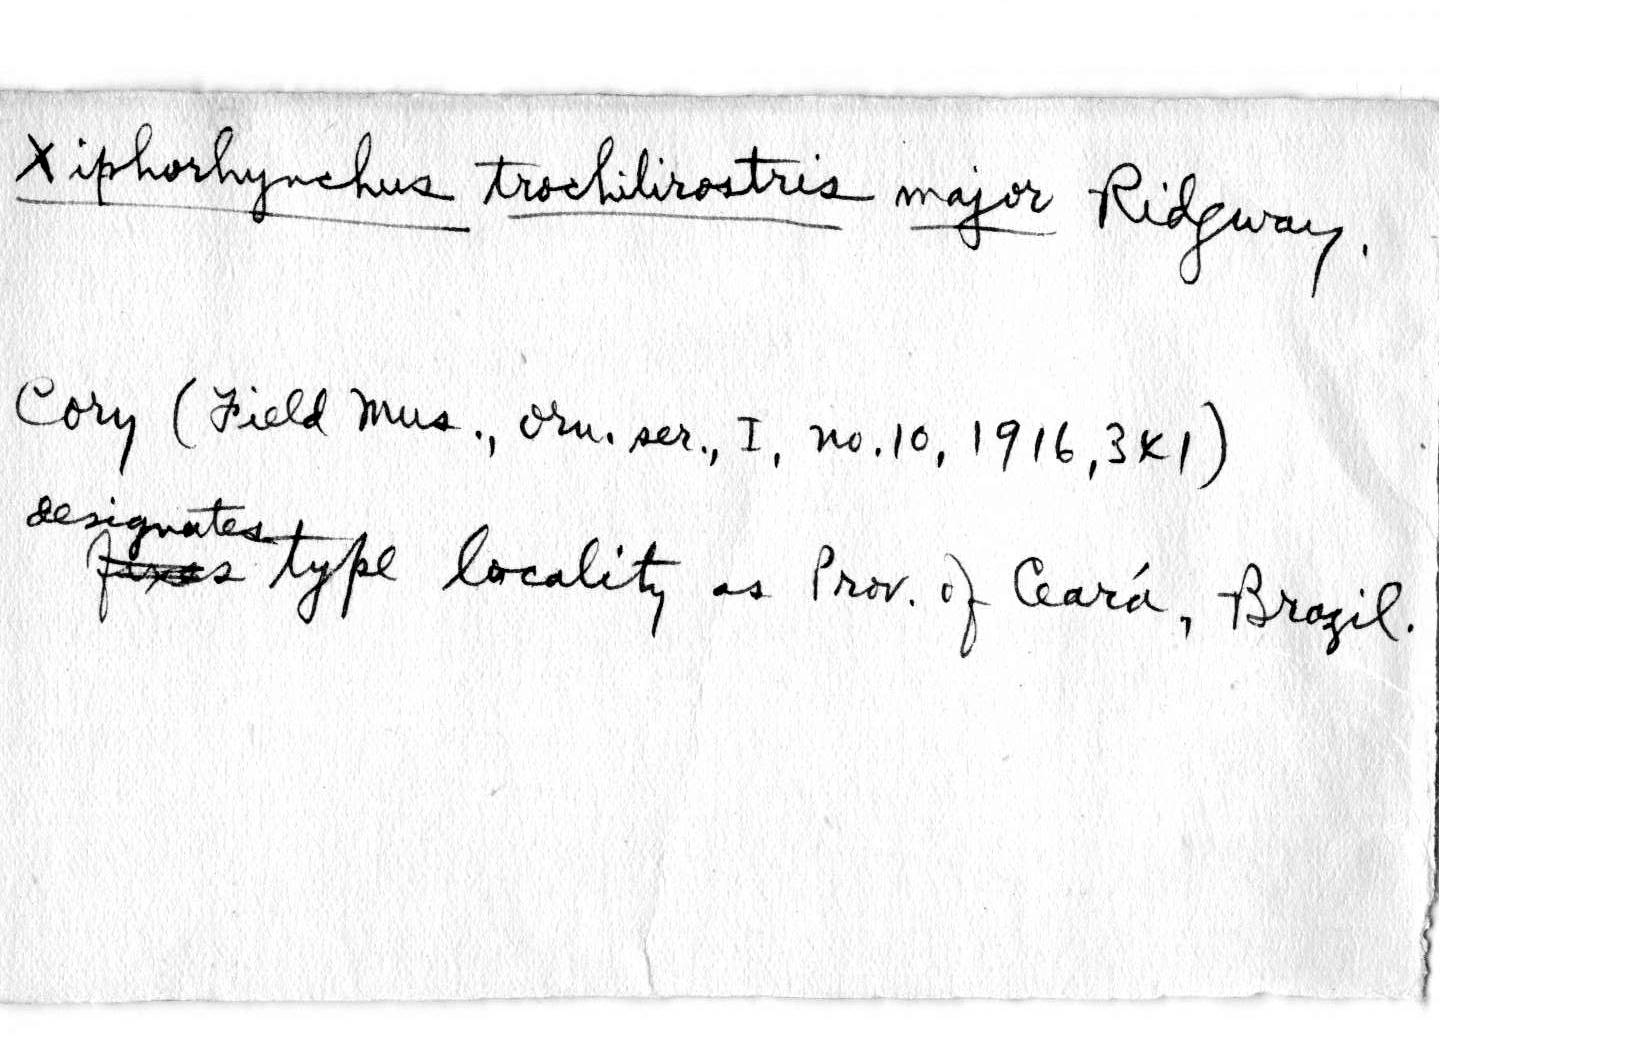 Xiphorhynchus trochilirostris major Ridgway.
Cory (Field Mus., Orn. ser., I, no. 10, 1916, 341)
designates
fixes type locality as Prov. of Ceará, Brazil.